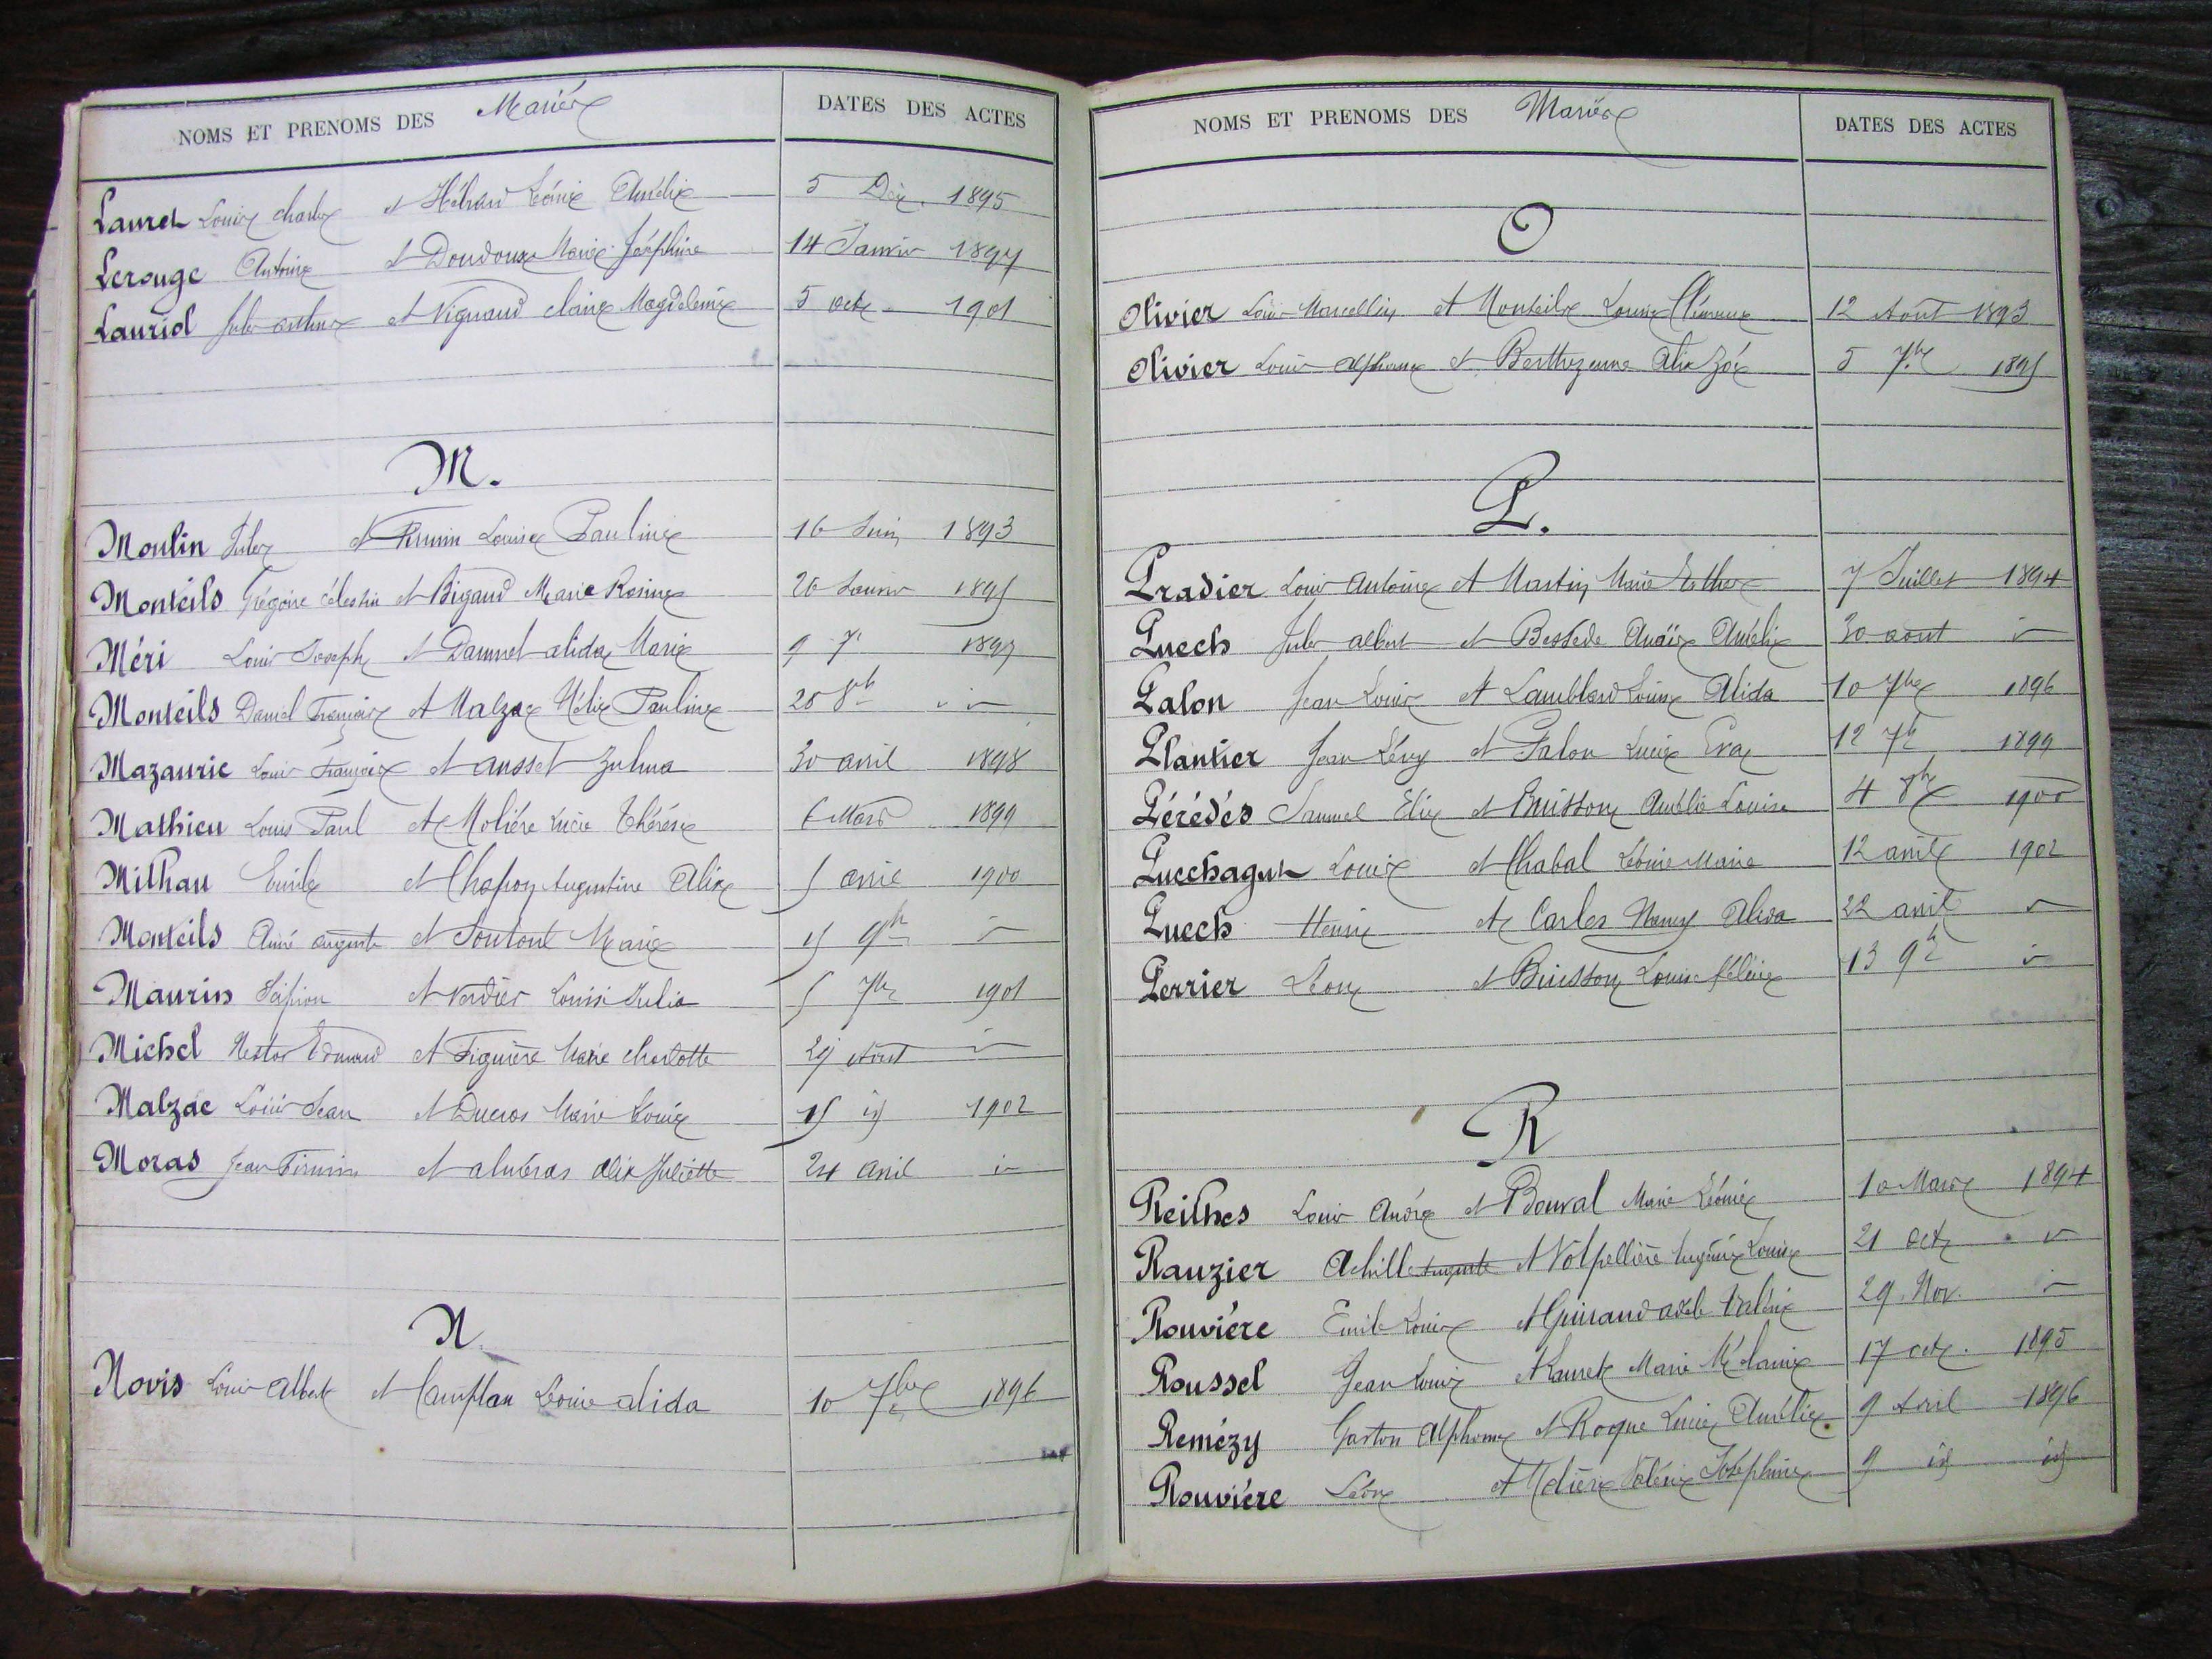 NOMS ET PRENOMS DES Mariés
DATES DES ACTES
Lauret Louis Charles et Hébrard Léonie Amélie 5 Déc. 1895
Lerouge Antoine et Doudoux Marie Joséphine 14 Janvier 1897
Lauriol Jules arthur et Vignaud claire Magdeleine 5 oct. 1901
M.
Moulin Jules et Firmin Louise Pauline 16 Juin 1893
Monteils Grégoire célestin et Bigaud Marie Rosine 26 Janvier 1895
Méri Louis Joseph et alida Marie 9 1897
Monteils Daniel François et Malzac Mélie Pauline 28 8bre
Mazauric Louis François et ausset Zulma 30 avril 1898
Mathieu Louis Paul et Molière Lucie Thérèse 6 Mars 1899
Milhau Emile et Chapon Augustine Alix 5 avril 1900
Monteils Aimé auguste et Soutoul Marie 15 9bre id
Maurin Scipion et Verdier Louise Julia 5 7bre 1901
Michel Nestor Edmond et Figuière Marie charlotte 29 Aout id
Malzac Louis Jean et Ducros Marie Louise 15 id 1902
Moras Jean Firmin et aluéras alix Juliette 24 avril id
N.
Novis Louis Albert et Camplan Léonie alida 10 7bre 1896
NOMS ET PRENOMS DES Mariés
DATES DES ACTES
O
Olivier Louis Marcellin et Monteils Louise Clémence 12 Aout 1893
Olivier Louis alphonse et Berthezenne Alix Zoé 5 7bre 1895
P.
Pradier Louis Antoine et Martin Marie Esther 7 Juillet 1894
Puech Jules albert et Bessède Anaïs Amélie 30 aout id
Palon Jean Louis et Lamblard Louise Alida 10 7bre 1896
Plantier Jean Lévy et Palon Lucie Eva 12 7bre 1899
Pérédés Samuel Elie et Buisson Amélie Louise 4 8bre 1900
Puechagut Louis et Chabal Léonie Marie 12 avril 1902
Puech Henri et Carles Nancy Alida 22 avril id
Perrier Léon et Buisson Louise félicie 13 9bre id
R
Reilhes Louis André et Bouval Marie Léonie 10 Mars 1894
Rauzier Achille Auguste et Volpellière Eugénie Louise 21 oct. id
Rouvière Emile Louis et Guiraud adele Valérie 29. Nov. id
Roussel Jean Louis et Lauret Marie Mélanie 17 oct. 1895
Remézy Gaston Alphonse et Roque Lucie Amélie. 9 Avril 1896
Rouvière Léon et Valérie Joséphine 9 id id